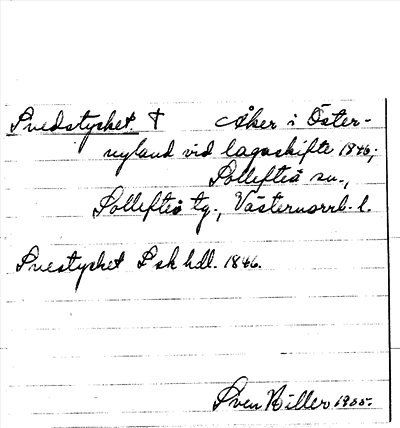 Svedstycket. † Åker i Öster-
nyland vid lagaskifte 1846;
Sollefteå sn.,
Sollefteå tg., Västernorrl. l.
Svestycket Lsk hdl. 1846.
Sven Hiller 1955.